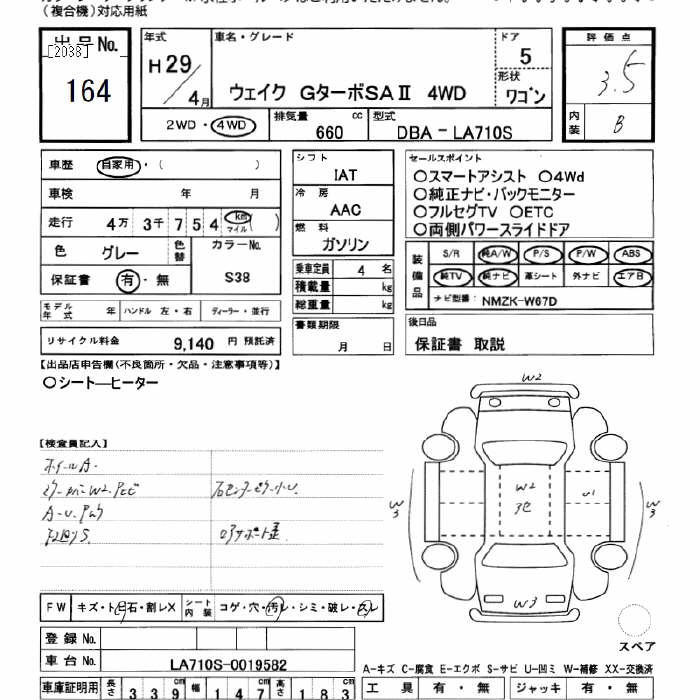 (複合機)対応用紙
出品No.
[2038]
164
年式
H29/4月
車名・グレード
ウェイク GターボSAⅡ 4WD
ドア
5
形状
ワゴン
評価点
3.5
内装
B
2WD・4WD
排気量
660 cc
型式
DBA-LA710S
車歴 自家用・( )
車検 年 月
走行 4万 3千 7 5 4 km マイル ( )
色 グレー
色替
カラーNo.
S38
保証書 有・無
シフト
IAT
冷房
AAC
燃料
ガソリン
乗車定員 4 名
積載量 kg
総重量 kg
書類期限
月 日
セールスポイント
○スマートアシスト ○4Wd
○純正ナビ・バックモニター
○フルセグTV ○ETC
○両側パワースライドドア
装備品
S/R 純A/W P/S P/W ABS
純TV 純ナビ 革シート 外ナビ エアB
ナビ型番: NMZK-W67D
モデル年式 年 ハンドル 左・右 ディーラー・並行
リサイクル料金 9,140 円 預託済
後日品
保証書 取説
【出品店申告欄(不良箇所・欠品・注意事項等)】
○シートーヒーター
【検査員記入】
ホイールA.
A-U.
W2
W3
W3
W2
U1
W3
スペア
FW キズ・トビ石・割レX
シート内装 コゲ・穴・汚レ・シミ・破レ・スレ
登録No.
車台No. LA710S-0019582
車庫証明用 長さ 339cm 幅 147cm 高さ 183cm
A-キズ C-腐食 E-エクボ S-サビ U-凹ミ W-補修 XX-交換済
工具 有・無 ジャッキ 有・無